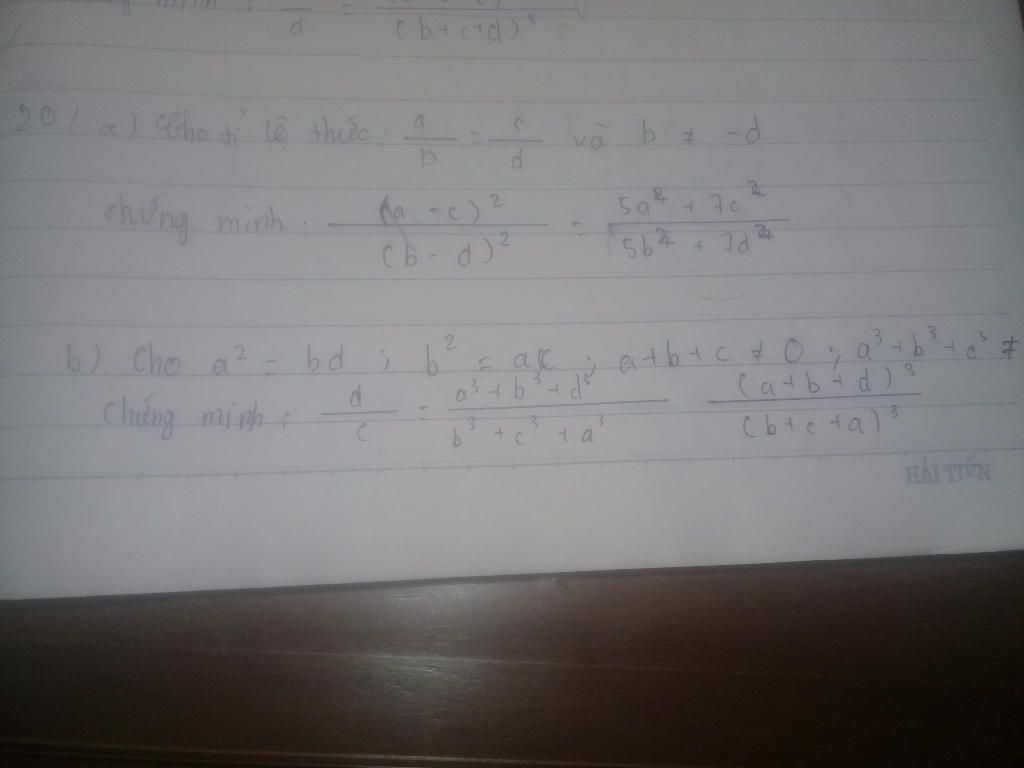 d = (b+c+d)³
20/ a) Cho tỉ lệ thức: a/b = c/d và b ≠ -d
chứng minh: (a-c)²/(b-d)² = 5a² + 7c²/5b² + 7d²
b) Cho a² = bd; b² = ac; a+b+c ≠ 0; a³+b³+c³ ≠
chứng minh: d/c = a³+b³+d³/b³+c³+a³ (a+b+d)³/(b+c+a)³
HẢI TIẾN